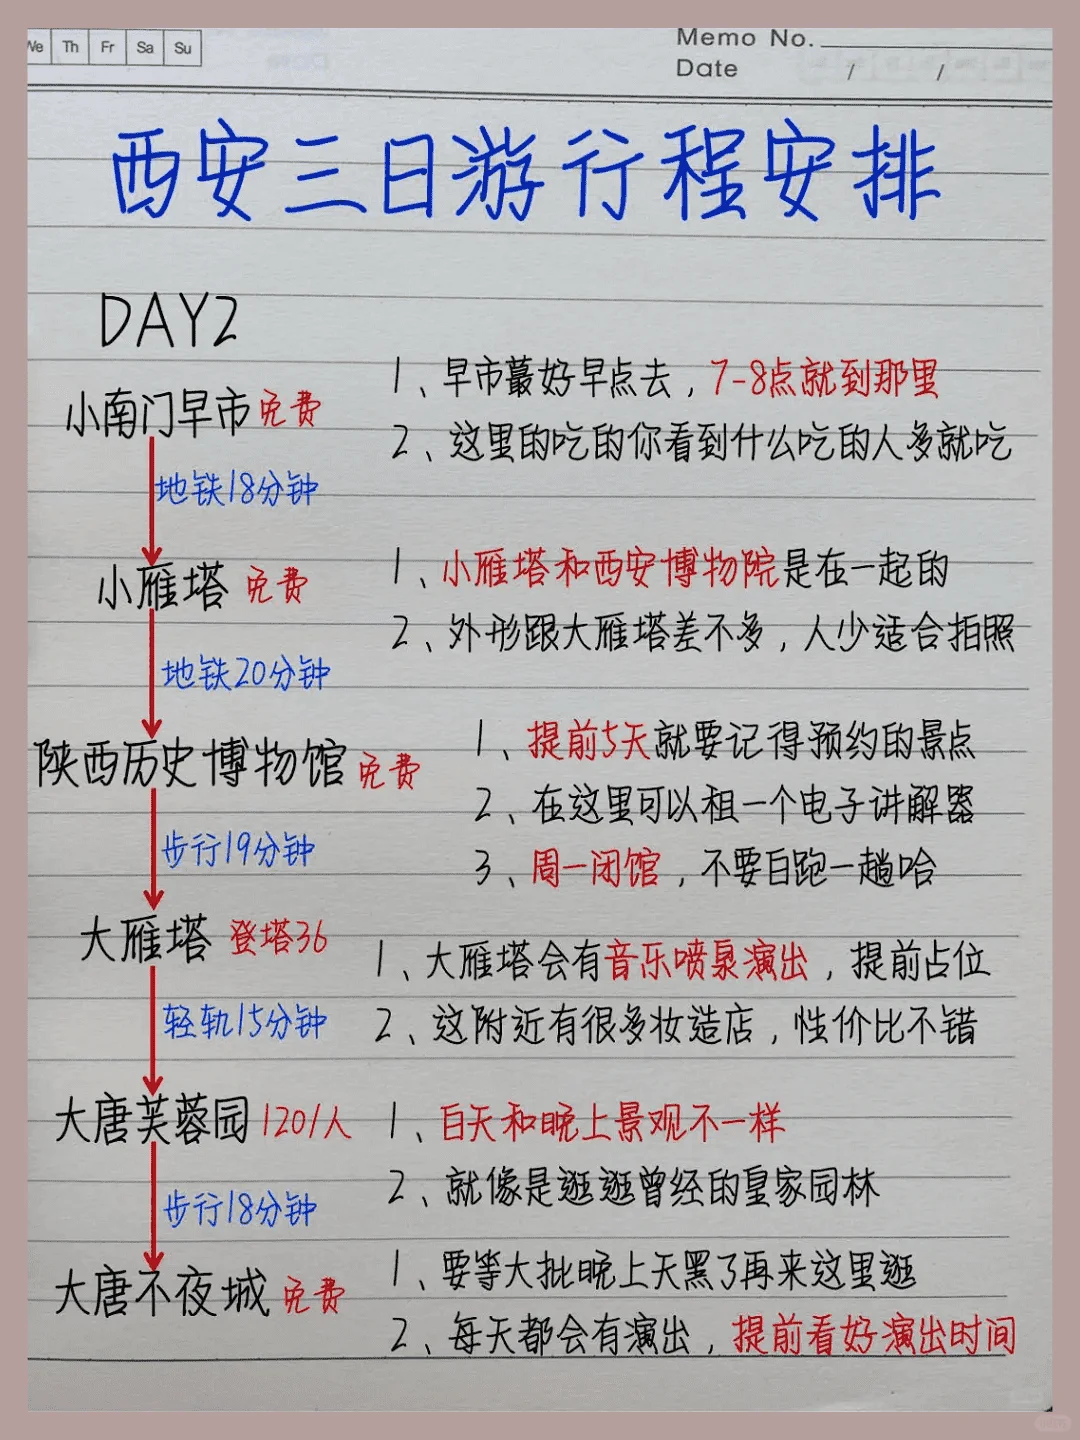 We Th Fr Sa Su
Memo No.
Date / /
西安三日游行程安排
DAY2
小南门早市 免费
1、早市蕞好早点去，7-8点就到那里
2、这里的吃的你看到什么吃的人多就吃
地铁18分钟
小雁塔 免费
1、小雁塔和西安博物院是在一起的
2、外形跟大雁塔差不多，人少适合拍照
地铁20分钟
陕西历史博物馆 免费
1、提前5天就要记得预约的景点
2、在这里可以租一个电子讲解器
3、周一闭馆，不要白跑一趟哈
步行19分钟
大雁塔 登塔36
1、大雁塔会有音乐喷泉演出，提前占位
2、这附近有很多妆造店，性价比不错
轻轨15分钟
大唐芙蓉园 120/人
1、白天和晚上景观不一样
2、就像是逛逛曾经的皇家园林
步行18分钟
大唐不夜城 免费
1、要等大批晚上天黑了再来这里逛
2、每天都会有演出，提前看好演出时间